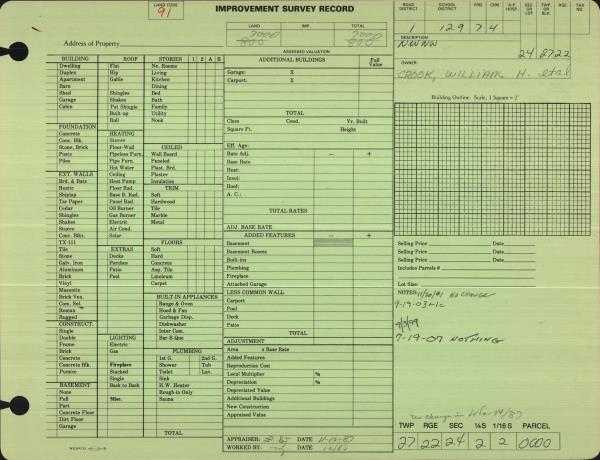 LAND CODE
91
IMPROVEMENT SURVEY RECORD
LAND IMP. TOTAL
Address of Property
ASSESSED VALUATION
ROAD DISTRICT SCHOOL DISTRICT FIRE CEM. A.P. HOSP SEC OR LOT TWP OR BLK RGE. TAX NO.
12 9 7 4
DESCRIPTION
NWNW 24 2722
OWNER
CROOK, WILLIAM H. etal
Building Outline: Scale, 1 Square = 2'
BUILDING ROOF STORIES 1 2 A B
Dwelling Flat No. Rooms
Duplex Hip Living
Apartment Gable Kitchen
Barn Dining
Shed Shingles Bed
Garage Shakes Bath
Cabin Pat Shingle Family
Built-up Utility
Roll Nook
FOUNDATION
Concrete HEATING
Conc. Blk. Stoves CEILED
Stone, Brick Floor-Wall Wall Board
Posts Pipeless Furn. Paneled
Piles Pipe Furn. Plast. Brd.
Hot Water Plaster
EXT. WALLS Ceiling Insulation
Brd. & Bats Heat Pump TRIM
Rustic Floor Rad. Soft
Shiplap Base B. Rad. Hardwood
Tar Paper Panel Rad. Tile
Cedar Oil Burner Marble
Shingles Gas Burner Metal
Shakes Electric
Stucco Air Cond.
Conc. Blks. Solar
TX-111 FLOORS
Tile EXTRAS Soft
Stone Decks Hard
Galv. Iron Porches Concrete
Aluminum Patio Asp. Tile
Brick Pool Linoleum
Vinyl Carpet
Masonite
Brick Ven. BUILT-IN APPLIANCES
Com. Sel. Range & Oven
Roman Hood & Fan
Ragged Garbage Disp.
CONSTRUCT. Dishwasher
Single Inter Com.
Double LIGHTING Bar-B-Que
Frame Electric
Brick Gas PLUMBING
Concrete 1st G. 2nd G.
Concrete Blk. Fireplace Shower Tub
Pumice Stacked Toilet Lav.
Single Sink
BASEMENT Back to Back H.W. Heater
Full Rough-in Only
Part Misc. Sauna
Concrete Floor
Dirt Floor
Garage
TOTAL
ADDITIONAL BUILDINGS Full Value
Garage: X
Carport: X
TOTAL
Class Cond. Yr. Built
Square Ft. Height
Eff. Age:
Rate Adj. − +
Base Rate
Heat:
Insul:
Roof:
A. C.:
TOTAL RATES
ADJ. BASE RATE
ADDED FEATURES − +
Basement
Basement Rooms
Built-ins
Plumbing
Fireplace
Attached Garage
LESS COMMON WALL
Carport
Pool
Deck
Patio
TOTAL
ADJUSTMENT
Area x Base Rate
Added Features
Reproduction Cost
Local Multiplier %
Depreciation %
Depreciated Value
Additional Buildings
New Construction
Appraised Value
APPRAISER: DATE 11-19-87
WORKED BY: DATE
Selling Price Date
Selling Price Date
Selling Price Date
Includes Parcels #
Lot Size:
NOTES: 11/20/91 NO CHANGE
9-19-03
9/3/99
7-19-07 NOTHING
no change in
TWP RGE SEC ¼S 1/16 S PARCEL
27 22 24 2 2 0000